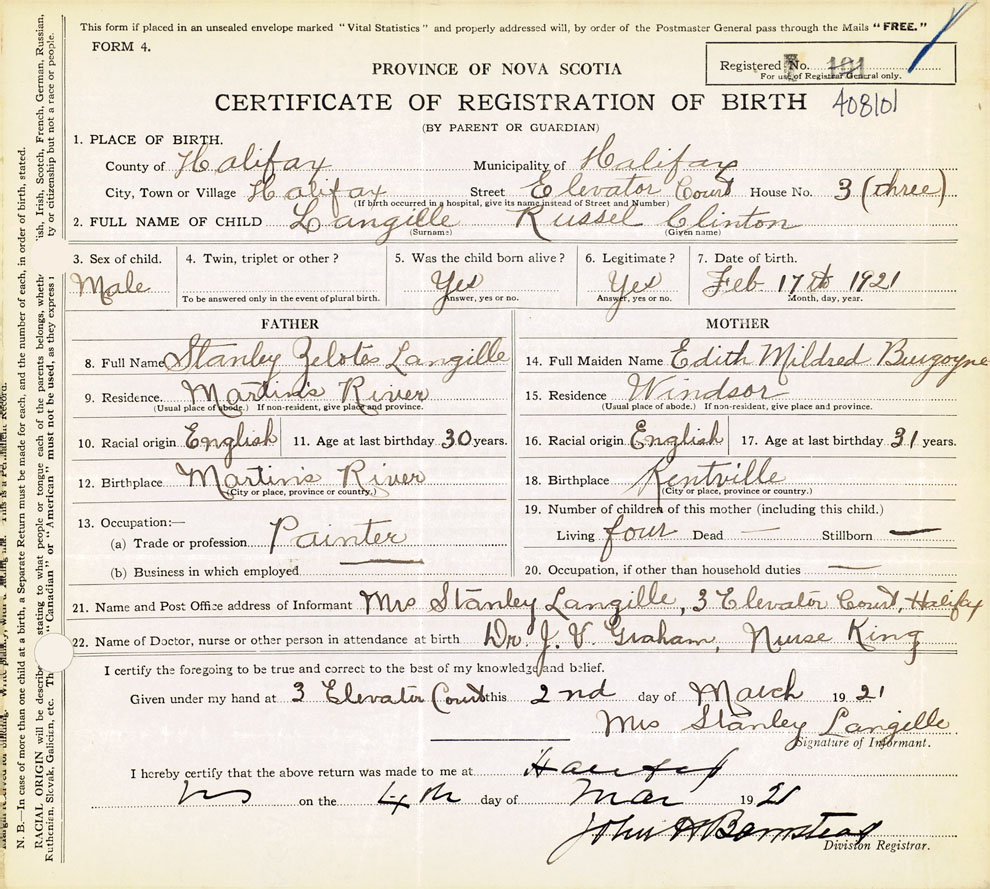 This form if placed in an unsealed envelope marked "Vital Statistics" and properly addressed will, by order of the Postmaster General pass through the Mails "FREE."
FORM 4.
Registered No. 101
For use of Registrar General only.
PROVINCE OF NOVA SCOTIA
CERTIFICATE OF REGISTRATION OF BIRTH 408101
(BY PARENT OR GUARDIAN)
1. PLACE OF BIRTH.
County of Halifax Municipality of Halifax
City, Town or Village Halifax Street Elevator Court House No. 3 (three)
(If birth occurred in a hospital, give its name instead of Street and Number)
2. FULL NAME OF CHILD Langille Russel Clinton
(Surname) (Given name)
3. Sex of child. 4. Twin, triplet or other? 5. Was the child born alive? 6. Legitimate? 7. Date of birth.
Male Yes Yes Feb. 17th 1921
To be answered only in the event of plural birth. Answer, yes or no. Answer, yes or no. Month, day, year.
FATHER MOTHER
8. Full Name Stanley Zelotes Langille 14. Full Maiden Name Edith Mildred Burgoyne
9. Residence. Martin's River 15. Residence Windsor
(Usual place of abode.) If non-resident, give place and province. (Usual place of abode.) If non-resident, give place and province.
10. Racial origin English 11. Age at last birthday 30 years. 16. Racial origin English 17. Age at last birthday 31 years.
12. Birthplace Martin's River 18. Birthplace Kentville
(City or place, province or country.) (City or place, province or country.)
13. Occupation:— 19. Number of children of this mother (including this child.)
(a) Trade or profession Painter Living four Dead — Stillborn —
(b) Business in which employed — 20. Occupation, if other than household duties —
21. Name and Post Office address of Informant Mrs Stanley Langille, 3 Elevator Court, Halifax
22. Name of Doctor, nurse or other person in attendance at birth Dr. J. V. Graham, Nurse King
I certify the foregoing to be true and correct to the best of my knowledge and belief.
Given under my hand at 3 Elevator Court this 2nd day of March 1921
Mrs Stanley Langille
Signature of Informant.
I hereby certify that the above return was made to me at Halifax
NS on the 4th day of Mar 1921
John H Barnstead
Division Registrar.
N. B.—In case of more than one child at a birth, a Separate Return must be made for each, and the number of each, in order of birth, stated.
RACIAL ORIGIN will be describe stating to what people or tongue each of the parents belongs, wheth ish, Irish, Scotch, French, German, Russian,
Ruthenian, Slovak, Galician, etc. Th "Canadian" or "American" must not be used, as they express ty or citizenship but not a race or people.